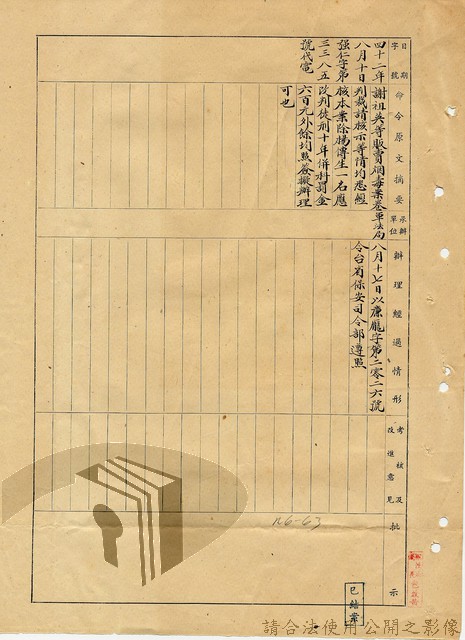 日期
字號
命令原文摘要
承辦
單位
辦理經過情形
考核及
改進意見
批示
四十二年
八月十日
强仁字第
三三八五
號代電
謝祖英等販賣烟毒案卷
判裁請核示等情均悉經
核本案除楊傳生一名應
改判徒刑十年併科罰金
六百元外餘均照簽擬辦理
可也
軍法局
八月十七日以廉龐字第二零二六號
令台省保安司令部遵照
126-63
已結案
請合法使用公開之影像